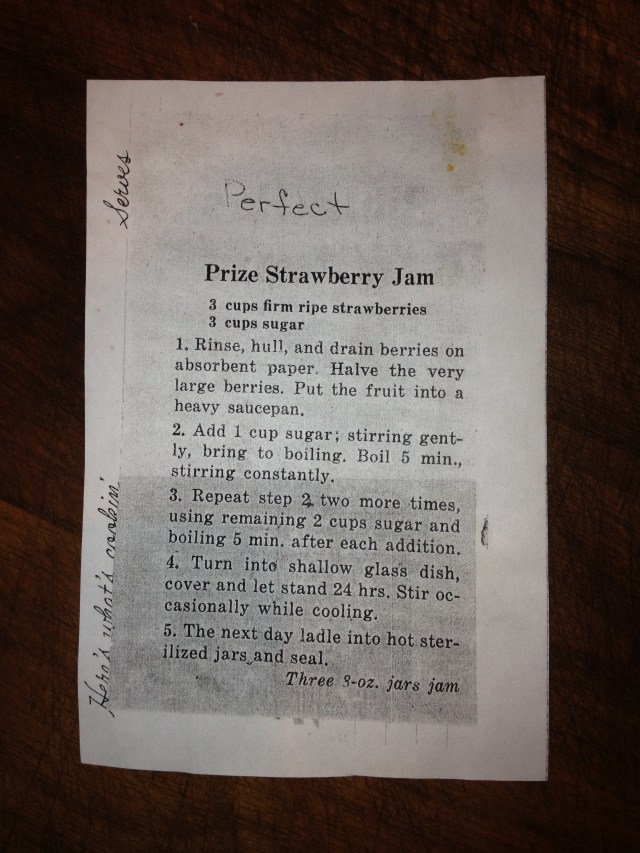 Perfect
Prize Strawberry Jam
3 cups firm ripe strawberries
3 cups sugar
1. Rinse, hull, and drain berries on
absorbent paper. Halve the very
large berries. Put the fruit into a
heavy saucepan.
2. Add 1 cup sugar; stirring gent-
ly, bring to boiling. Boil 5 min.,
stirring constantly.
3. Repeat step 2 two more times,
using remaining 2 cups sugar and
boiling 5 min. after each addition.
4. Turn into shallow glass dish,
cover and let stand 24 hrs. Stir oc-
casionally while cooling.
5. The next day ladle into hot ster-
ilized jars and seal.
Three 8-oz. jars jam
Here's what's cookin'
Serves